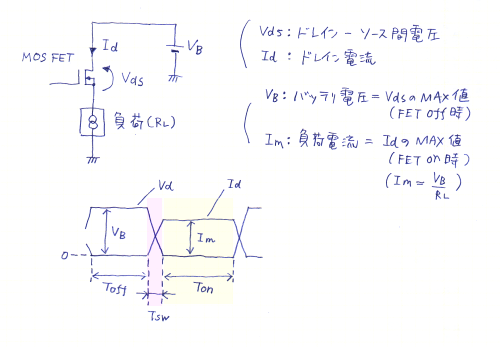 Id
VB
MOS FET
Vds
負荷(RL)
Vds: ドレイン - ソース間電圧
Id : ドレイン電流
VB: バッテリ電圧 = VdsのMAX値
(FET off時)
Im: 負荷電流 = IdのMAX値
(FET on時)
(Im = VB/RL)
Vd
Id
VB
Im
0
Toff
Ton
Tsw